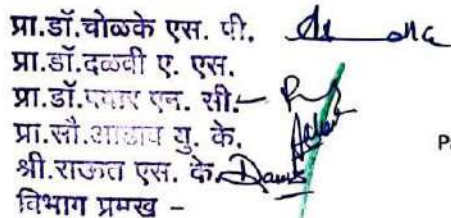 प्रा.डॉ.चोळके एस. पी.
प्रा.डॉ.दळवी ए. एस.
प्रा.डॉ.पवार एन. सी.-
प्रा.सौ.आढाव यु. के.
श्री.राऊत एस. के.
विभाग प्रमख -